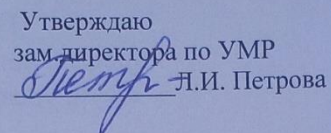 Утверждаю
зам.директора по УМР
Петр Л.И. Петрова